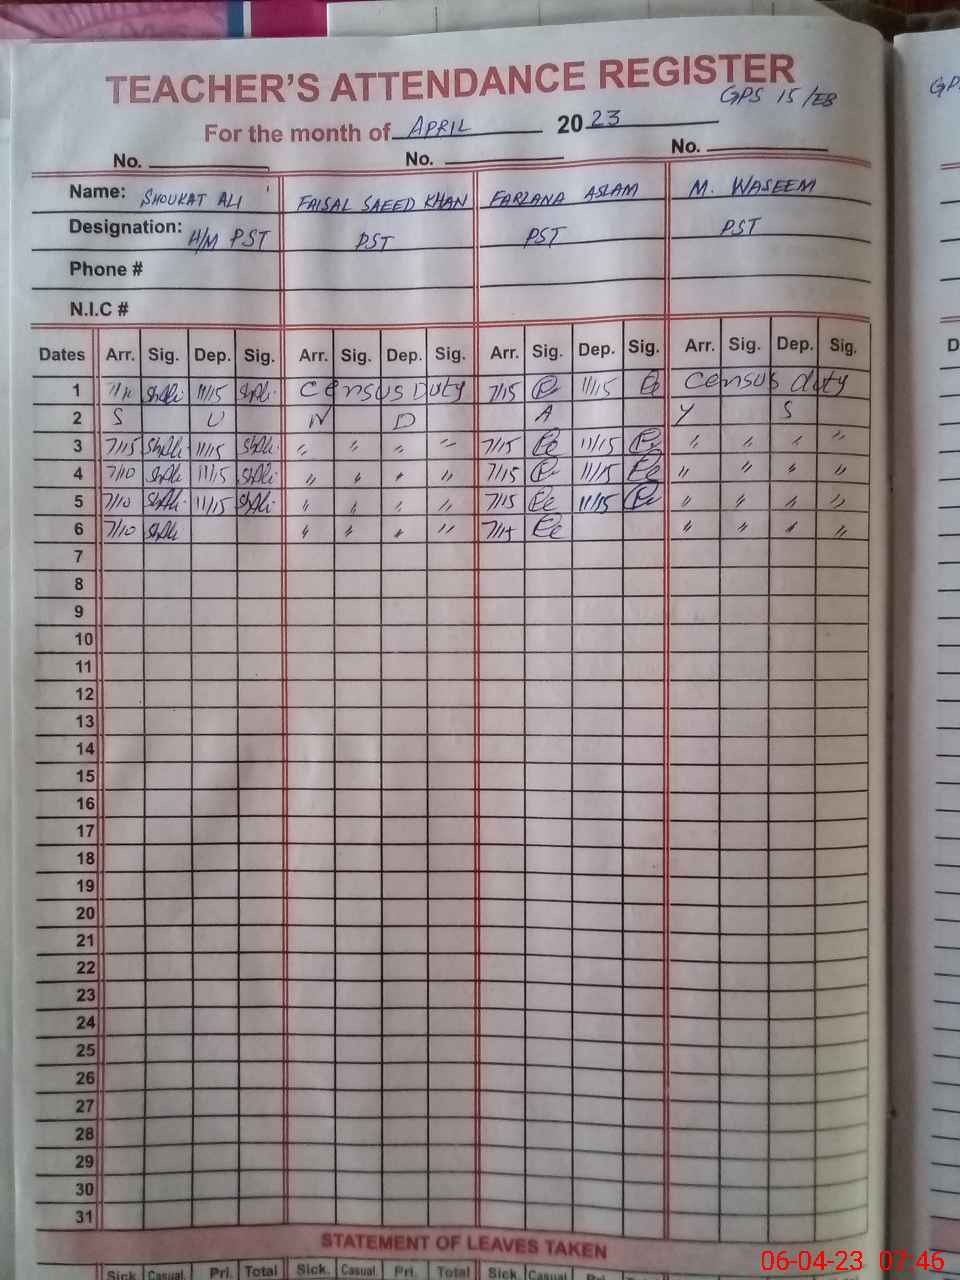 TEACHER'S ATTENDANCE REGISTER
GPS 15/EB
For the month of APRIL 2023
No. No. No.
Name: SHOUKAT ALI FAISAL SAEED KHAN FARZANA ASLAM M. WASEEM
Designation: H/M PST PST PST PST
Phone #
N.I.C #
Dates Arr. Sig. Dep. Sig. Arr. Sig. Dep. Sig. Arr. Sig. Dep. Sig. Arr. Sig. Dep. Sig.
1 7/10 11/15 Census Duty 7/15 11/15 Census duty
2 S U N D A Y S
3 7/15 11/15 " " " " 7/15 11/15 " " " "
4 7/10 11/15 " " " " 7/15 11/15 " " " "
5 7/10 11/15 " " " " 7/15 11/15 " " " "
6 7/10 " " " " 7/15 " " " "
7
8
9
10
11
12
13
14
15
16
17
18
19
20
21
22
23
24
25
26
27
28
29
30
31
STATEMENT OF LEAVES TAKEN
Sick Casual Pri. Total Sick. Casual Pri. Total Sick. Casual Pri. Total
06-04-23 07:46